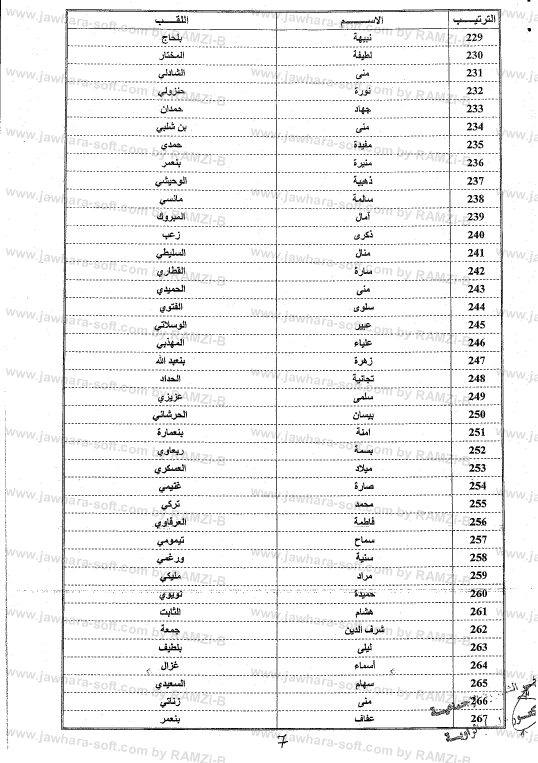 الترتيب الاســـم اللقـــب
229 نبيهة بلحاج
230 لطيفة المختار
231 منى الشاذلي
232 نورة حنزولي
233 جهاد حمدان
234 منى بن شلبي
235 مفيدة حمدي
236 منيرة بنعمر
237 ذهبية الوحيشي
238 سالمة مانسي
239 أمال المبروك
240 ذكرى زعب
241 منال السليطي
242 سارة القطاري
243 منى الحميدي
244 سلوى الفتوي
245 عبير الوسلاتي
246 علياء المهذبي
247 زهرة بنعبد الله
248 تجانية الحداد
249 سلمى عزيزي
250 بيسان الحرشاني
251 امنة بنعمارة
252 بسمة ربعاوي
253 ميلاد العسكري
254 صارة غنيمي
255 محمد تركي
256 فاطمة العرفاوي
257 سماح تيمومي
258 سنية ورغمي
259 مراد مليكي
260 حميدة نويوي
261 هشام الثابت
262 شرف الدين جمعة
263 ليلى بلطيف
264 أسماء غزال
265 سهام السعيدي
266 منى زناتي
267 عفاف بنعمر
7
www.jawhara-soft.com by RAMZI-B